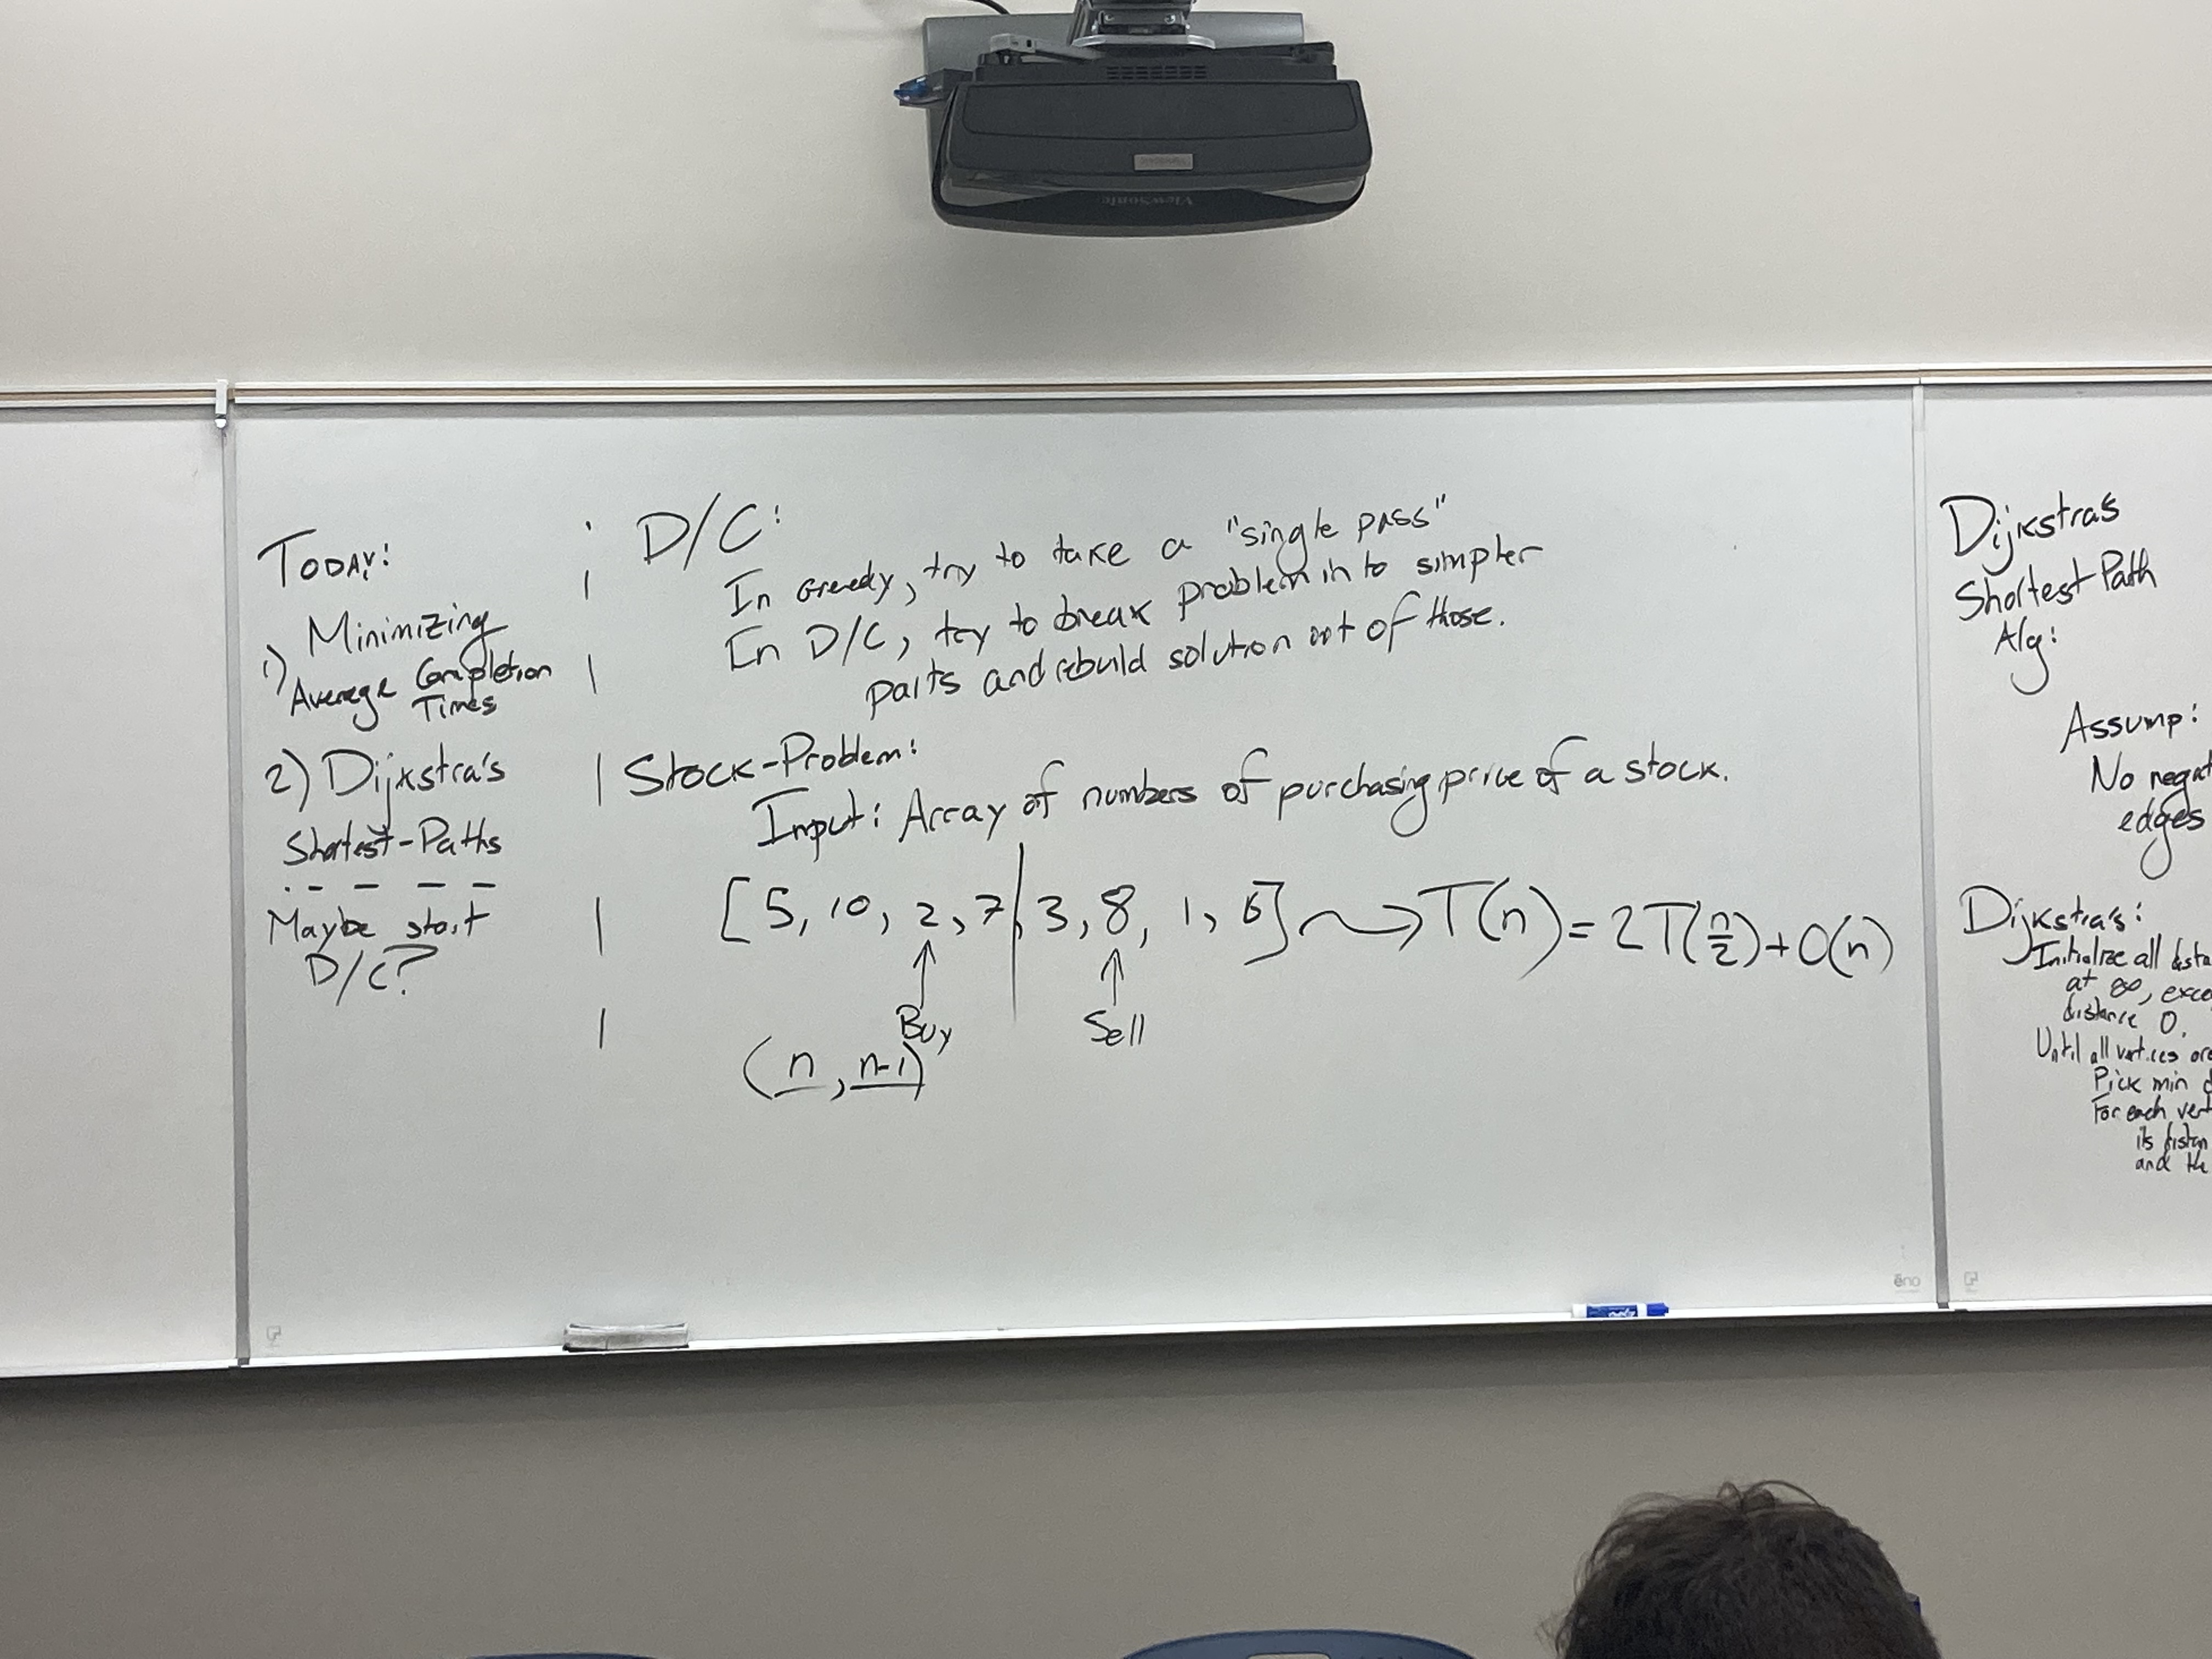 ViewSonic
TODAY:
1) Minimizing
Average Completion
Times
2) Dijkstra's
Shortest-Paths
Maybe start
D/C?
D/C:
In Greedy, try to take a "single pass"
In D/C, try to break problem in to simpler
parts and rebuild solution out of those.
Stock-Problem:
Input: Array of numbers of purchasing price of a stock.
[5, 10, 2, 7, 3, 8, 1, 6] → T(n) = 2T(n/2) + O(n)
Buy
Sell
(n, n-1)
ēno
Dijkstras
Shortest Path
Alg:
Assump:
No negat
edges
Dijkstra's:
Initialize all dista
at ∞, exce
distance 0.
Until all vertices are
Pick min d
For each vert
its distan
and the